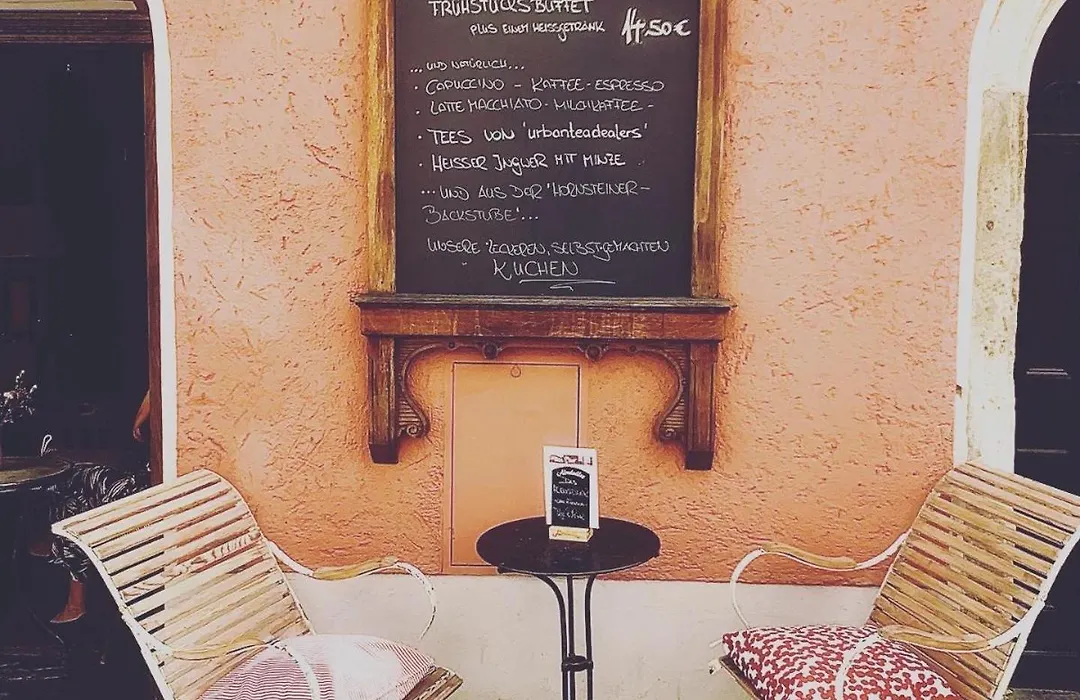 FRÜHSTÜCKSBUFFET
PLUS EINEM HEISSGETRÄNK 14.50€
... UND NATÜRLICH...
· CAPUCCINO - KAFFEE - ESPRESSO
· LATTE MACCHIATO - MILCHKAFFEE -
· TEES VON 'urbanteadealers'
· HEISSER INGWER MIT MINZE
... UND AUS DER 'HORNSTEINER-
BACKSTUBE'...
UNSERE LECKEREN, SELBSTGEMACHTEN
KUCHEN